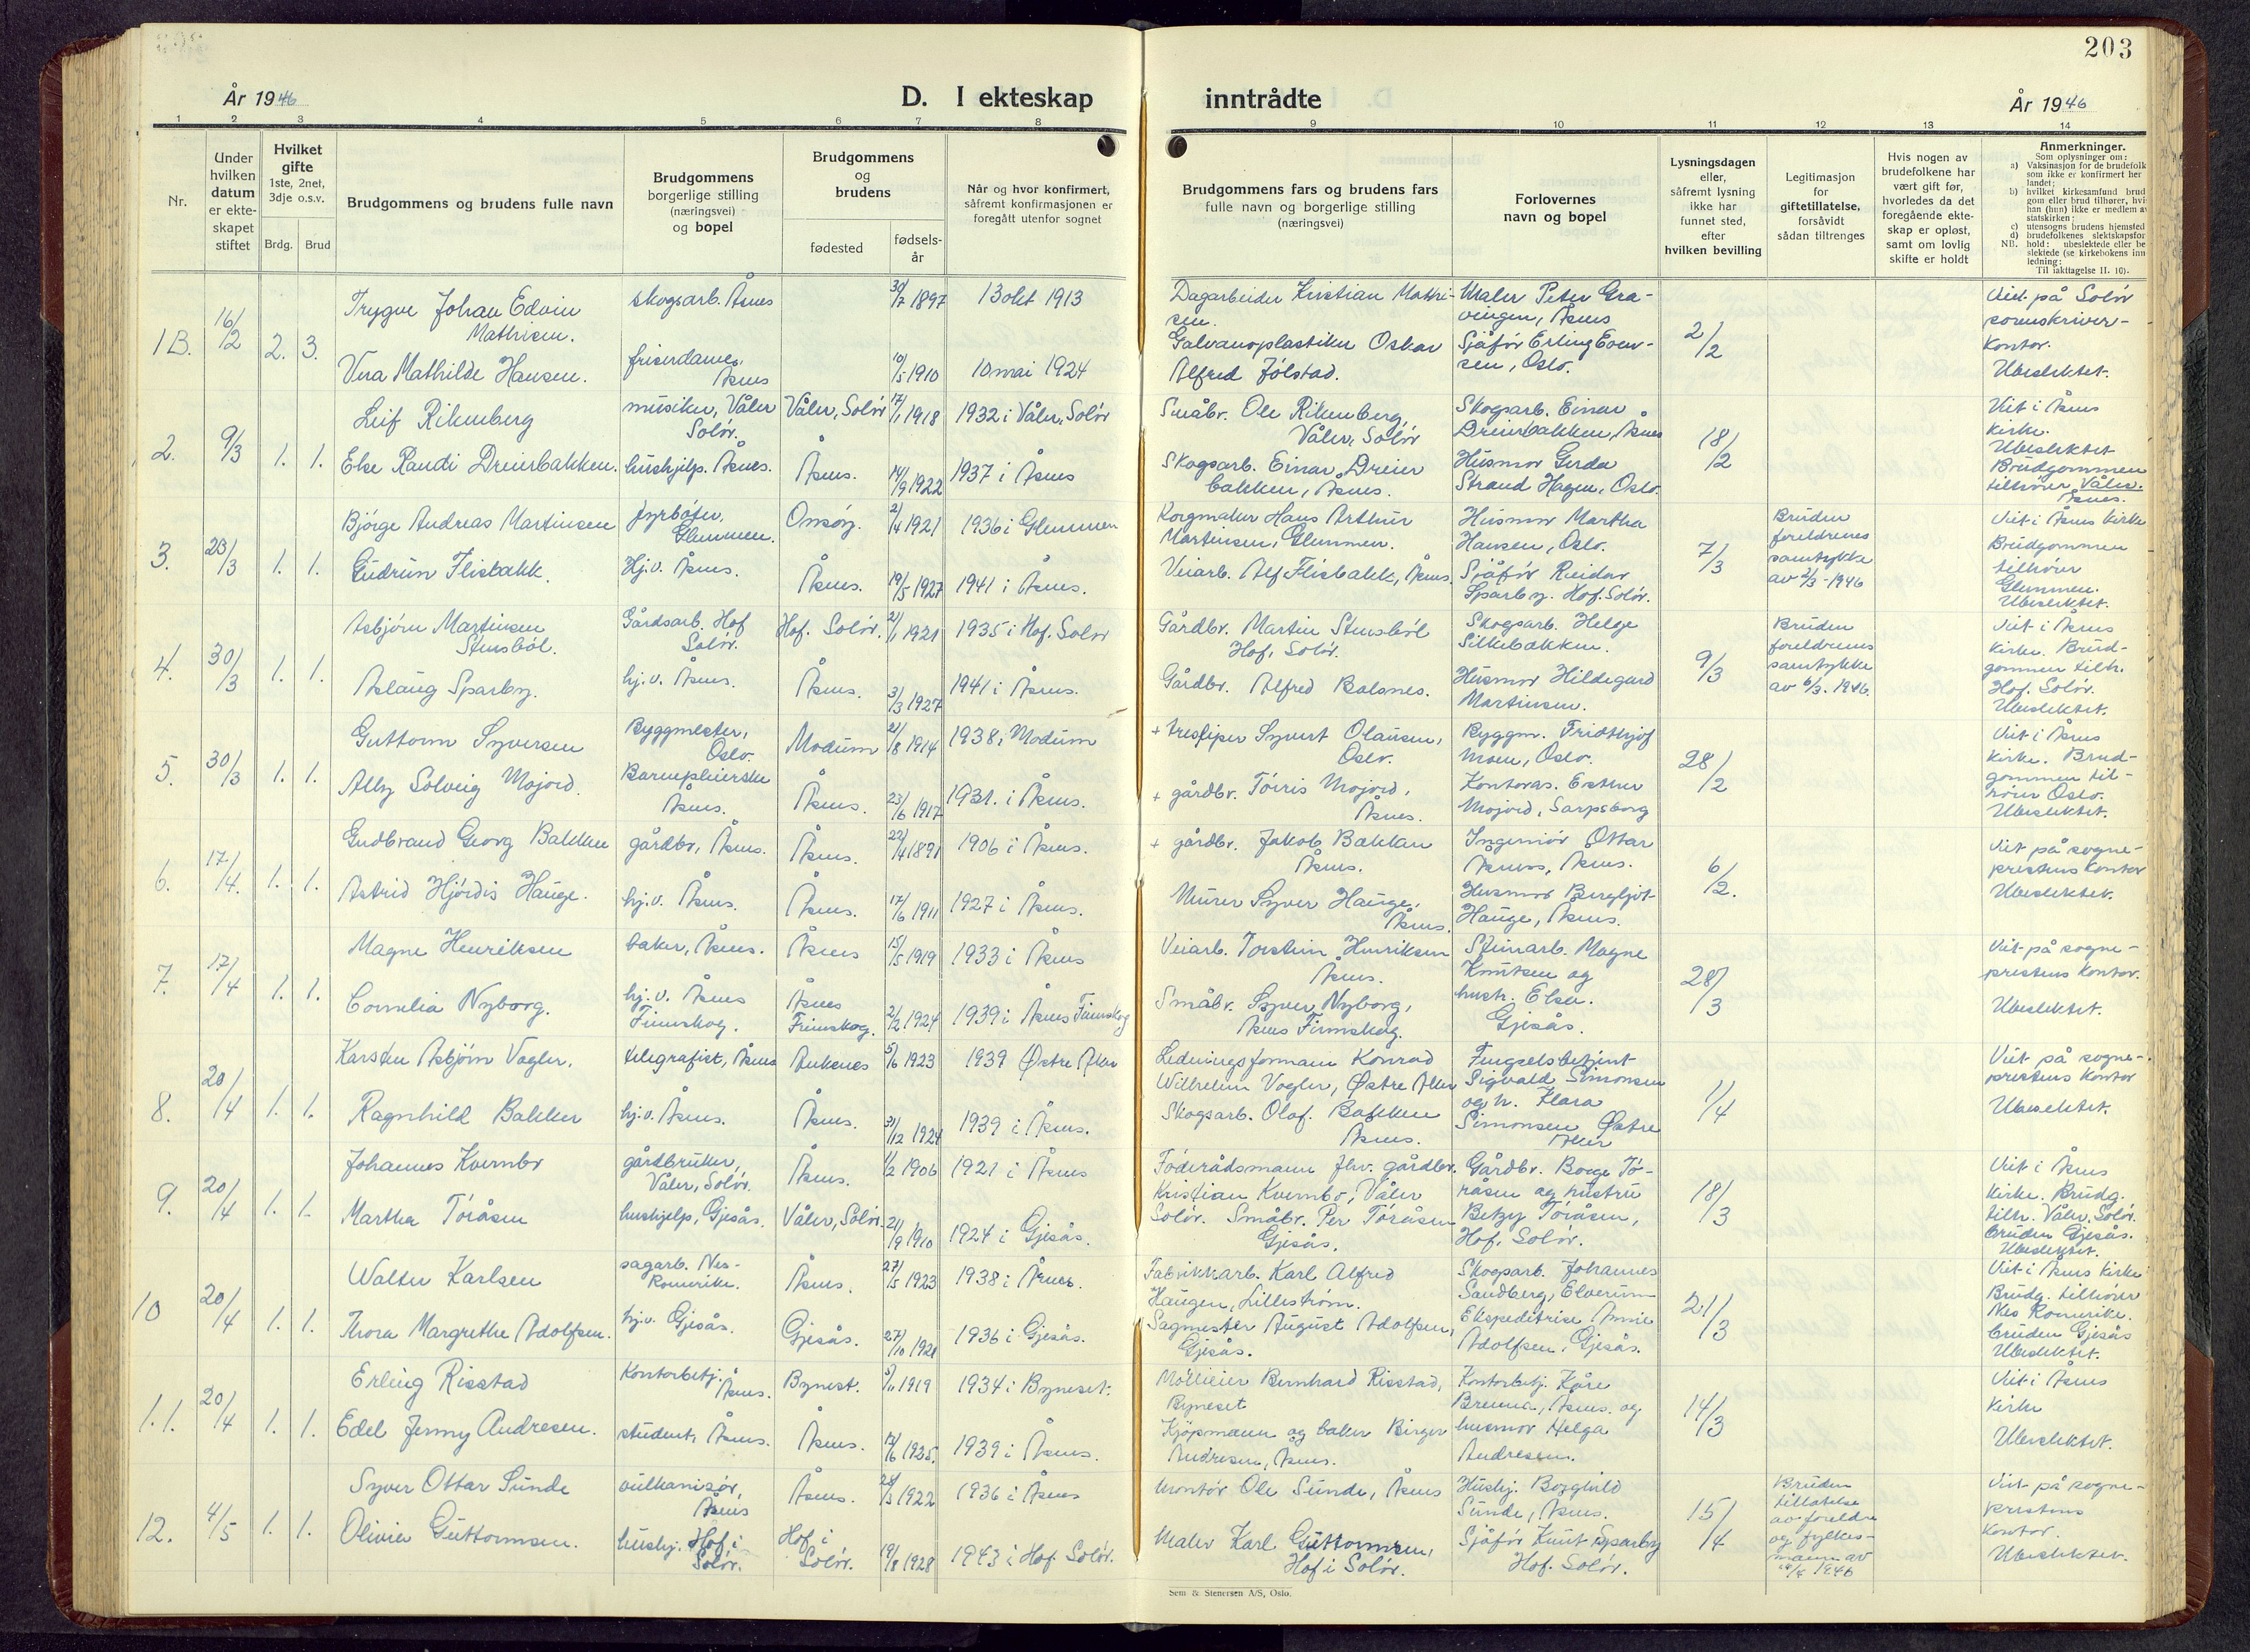 203
År 1946
D. I ekteskap
inntrådte
År 1946
1 2 3 4 5 6 7 8 9 10 11 12 13 14
Nr.
Under
hvilken
datum
er ekte-
skapet
stiftet
Hvilket
gifte
1ste, 2net,
3dje o.s.v.
Brdg. Brud
Brudgommens og brudens fulle navn
Brudgommens
borgerlige stilling
(næringsvei)
og bopel
Brudgommens
og
brudens
fødested
fødsels-
år
Når og hvor konfirmert,
såfremt konfirmasjonen er
foregått utenfor sognet
Brudgommens fars og brudens fars
fulle navn og borgerlige stilling
(næringsvei)
Forlovernes
navn og bopel
Lysningsdagen
eller,
såfremt lysning
ikke har
funnet sted,
efter
hvilken bevilling
Legitimasjon
for
giftetillatelse,
forsåvidt
sådan tiltrenges
Hvis nogen av
brudefolkene har
vært gift før,
hvorledes da det
foregående ekte-
skap er opløst,
samt om lovlig
skifte er holdt
Anmerkninger.
Som oplysninger om:
a) Vaksinasjon for de brudefolk
som ikke er konfirmert her
landet;
b) hvilket kirkesamfund brud
gom eller brud tilhører, hvi
han (hun) ikke er medlem av
statskirken;
c) utensogns brudens hjemsted
d) brudefolkenes slektskapsfor
NB. hold: ubeslektede eller be
slektede (se kirkebokens inn
ledning:
Til iakttagelse II. 10).
1B. 16/2 2. 3.
Trygve Johan Edvin
Mathisen.
skogsarb. Åsnes
30/7 1897
13 okt 1913
Dagarbeider Kristian Mathi-
sen.
Maler Peter Gra-
vingen, Åsnes
2/2
Viet på Solør
sorenskriver-
kontor.
Ubeslektet.
Vera Mathilde Hansen.
friserdame,
Åsnes
10/5 1910
10 mai 1924
Galvanoplastiker Oskar
Alfred Jølstad.
Sjåfør Erling Even-
sen, Oslo.
2. 9/3 1. 1.
Leif Rikenberg
musiker, Våler
Solør.
Våler, Solør
17/1 1918
1932 i Våler, Solør
Småbr. Ole Rikenberg,
Våler, Solør
Skogsarb. Einar
Dreierbakken, Åsnes
18/2
Viet i Åsnes
kirke.
Ubeslektet
Brudgommen
tilhører Våler.
Åsnes.
Else Randi Dreierbakken.
hushjelp. Åsnes.
Åsnes.
14/9 1922
1937 i Åsnes
Skogsarb. Einar Dreier
bakken, Åsnes.
Husmor Gerda
Strand Hagen, Oslo.
3. 23/3 1. 1.
Bjørge Andreas Martinsen
fyrbøter,
Glemmen.
Onsøy.
2/4 1921
1936 i Glemmen
Korgmaker Hans Arthur
Martinsen, Glemmen.
Husmor Martha
Hansen, Oslo.
7/3
Bruden
foreldrenes
samtykke
av 2/3-1946
Viet i Åsnes kirke
Brudgommen
tilhører
Glemmen.
Ubeslektet.
Gudrun Flisbakk.
Hj.v. Åsnes.
Åsnes.
19/5 1927
1941 i Åsnes.
Veiarb. Alf Flisbakk, Åsnes.
Sjåfør Reidar
Sparby. Hof. Solør.
4. 30/3 1. 1.
Asbjørn Martinsen
Stensbøl.
Gårdsarb. Hof
Solør.
Hof. Solør.
21/1 1921
1935 i Hof. Solør
Gårdbr. Martin Stensbøl
Hof, Solør.
Skogsarb. Helge
Silkebakken.
9/3
Bruden
foreldrenes
samtykke
av 6/3. 1946.
Viet i Åsnes
kirke. Brud-
gommen tilh.
Hof. Solør.
Ubeslektet.
Aslaug Sparby.
hj.v. Åsnes.
Åsnes.
3/3 1927
1941 i Åsnes.
Gårdbr. Alfred Balsnes.
Husmor Hildegard
Martinsen.
5. 30/3 1. 1.
Guttorm Syversen
Byggmester,
Oslo.
Modum
21/8 1914
1938 i Modum
+ tresliper Syvert Olausen,
Oslo.
Byggm. Fridthjof
Moen, Oslo.
28/2
Viet i Åsnes
kirke. Brud-
gommen til-
hører Oslo.
Ubeslektet.
Alby Solveig Mojord.
Barnepleierske
Åsnes.
Åsnes.
23/6 1917
1931. i Åsnes.
+ gårdbr. Tøiris Mojord,
Åsnes.
Kontoras. Esther
Mojord, Sarpsborg
6. 17/4. 1. 1.
Gudbrand Georg Bakken
gårdbr, Åsnes.
Åsnes.
22/4 1891
1906 i Åsnes.
+ gårdbr. Jakob Bakken
Åsnes.
Ingeniør Ottar
Åsnes, Åsnes.
6/2.
Viet på sogne-
prestens kontor
Ubeslektet.
Astrid Hjørdis Hauge.
hj.v. Åsnes.
Åsnes.
17/6 1911
1927 i Åsnes.
Murer Syver Hauge,
Åsnes.
Husmor Bergljot
Hauge, Åsnes.
7. 17/4 1. 1.
Magne Henriksen
baker, Åsnes.
Åsnes
15/5 1919
1933 i Åsnes
Veiarb. Torstein Henriksen
Åsnes.
Steinarb. Magne
Knutsen og
hustr. Else.
Gjesås.
28/3
Viet på sogne-
prestens kontor.
Ubeslektet.
Cornelia Nyborg.
hj.v. Åsnes
Finnskog.
Åsnes
Finnskog.
2/2 1924
1939 i Åsnes Finnskog
Småbr. Syver Nyborg,
Åsnes Finnskog.
8. 20/4 1. 1.
Karsten Asbjørn Vogler.
telegrafist, Åsnes
Ankenes
5/6 1923
1939 Østre Aker
Ledningsformann Konrad
Wilhelm Vogler, Østre Aker
Fengselsbetjent
Sigvald Simonsen
og h. Klara
Simonsen Østre
Aker
1/4
Viet på sogne-
prestens kontor
Ubeslektet.
Ragnhild Bakken
hj.v. Åsnes.
Åsnes.
31/12 1924
1939 i Åsnes.
Skogsarb. Olaf. Bakken
Åsnes.
9. 20/4 1. 1.
Johannes Kvernbo
gårdbruker,
Våler, Solør.
Åsnes.
1/2 1906
1921 i Åsnes
Føderådsmann fhv. gårdbr.
Kristian Kvernbo, Våler
Solør. Småbr. Per Tøråsen
Gjesås.
Gårdbr. Borge Tø-
råsen og hustru
Betzy Tøråsen,
Hof, Solør.
18/3
Viet i Åsnes
kirke. Brudg.
tilh. Våler, Solør.
bruden Gjesås.
Ubeslektet.
Martha Tøråsen
hushjelp, Gjesås.
Våler, Solør.
21/9 1910
1924 i Gjesås.
10 20/4 1. 1.
Walter Karlsen
sagarb. Nes-
Romerike.
Åsnes.
27/5 1923
1938 i Årnes.
Fabrikkarb. Karl Alfred
Haugen, Lillestrøm.
Skogsarb. Johannes
Sandberg, Elverum
21/3
Viet i Åsnes kirke
Brudg. tilhører
Nes Romerike.
bruden Gjesås
Ubeslektet.
Thora Margrethe Adolfsen.
hj.v. Gjesås.
Gjesås.
27/10 1921
1936 i Gjesås.
Sagmester August Adolfsen,
Gjesås.
Ekspeditrise Annie
Adolfsen, Gjesås.
11. 20/4 1. 1.
Erling Risstad
Kontorbetj.
Åsnes.
Bynest.
1919
1934 i Byneset.
Mølleeier Bernhard Risstad,
Byneset
Kontorbetj. Kåre
Brenna, Åsnes. og
husmor Helga
Andresen.
14/3
Viet i Åsnes
kirke
Ubeslektet.
Edel Jenny Andresen.
student, Åsnes.
Åsnes.
12/6 1925.
1939 i Åsnes.
Kjøpmann og baker Birger
Andresen, Åsnes.
12. 4/5 1. 1.
Syver Ottar Sunde
vulkanisør,
Åsnes
Åsnes.
24/3 1922
1936 i Åsnes
Montør Ole Sunde, Åsnes
Hushj. Borghild
Sunde, Åsnes.
15/4
Bruden
tillatelse
av foreldre
og fylkes-
mann av
1946
Viet på sogne-
prestens
kontor.
Ubeslektet.
Olivia Guttormsen.
hushj. Hof i
Solør.
Hof i
Solør.
19/8 1928
1943 i Hof. Solør.
Maler Karl Guttormsen,
Hof i Solør.
Sjåfør Knut Sparby
Hof. Solør.
Sem & Stenersen A/S, Oslo.